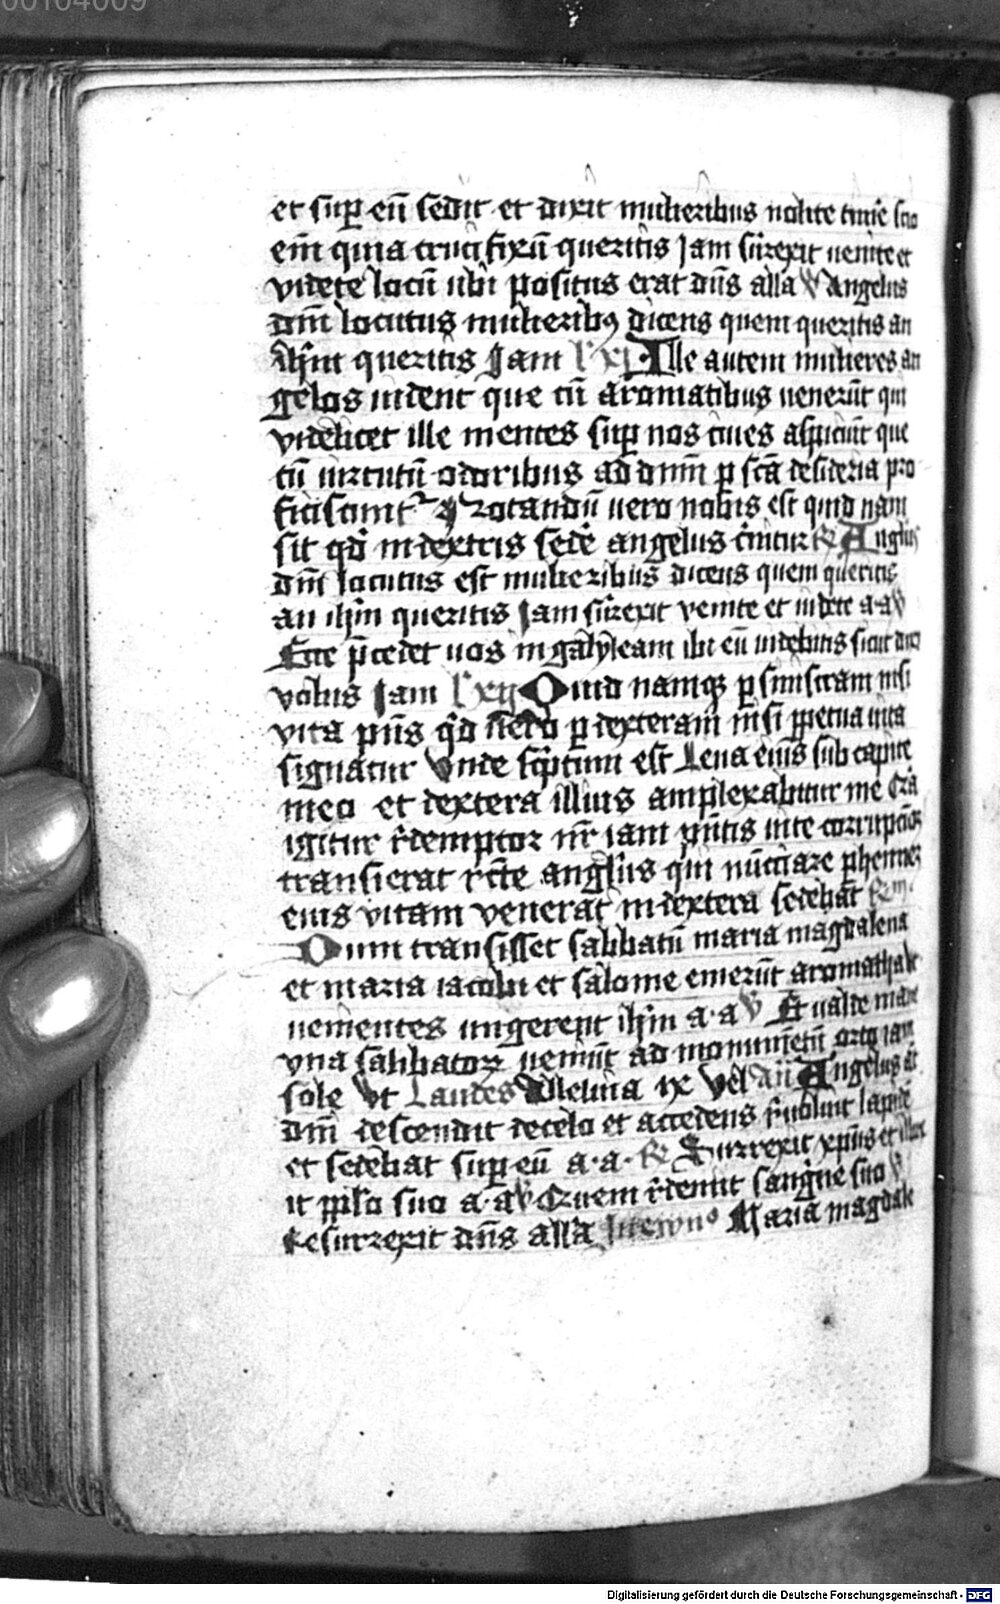 00104009
et sup eū sedit et dixit mulieribus nolite timē scio
em̄ quia crucifixū queritis Jam surrexit uenite et
videte locū ubi positus erat dn̄s alla v Angelus
dn̄i locutus mulieribus dicens quem queritis an
ihm queritis Jam Ille autem mulieres an
gelos uident que cū aromatibus uenerūt qui
videlicet ille mentes sup nos ciues aspiciūt que
cū uirtutū odoribus ad dnm p scā desideria pro
ficiscunt Notandū uero nobis est quid nam
sit qd in dextris sedē angelus cernitur R Anglus
dn̄i locutus est mulieribus dicens quem queritis
an ihm queritis Jam surrexit venite et uidete a a v
Ecce pcedet uos in galyleam ibi eū uidebitis sicut dixi
vobis Jam Quid namq p sinistram nisi
vita pn̄s qd uero p dexteram nisi ppetua uita
signatur Unde scptum est Leua eius sub capite
meo et dextera illius amplexabitur me Cra
igitur redemptor nr iam pn̄tis uite corrupcioēs
transierat rcte anglus qui nūcciare phennez
eius vitam venerat in dextera sedebat R
Dum transisset sabbatū maria magdalena
et maria iacobi et salome emerūt aromatha ut
uenientes ungerent ihm a a v Et ualde mane
vna sabbatorz ueniūt ad monumētū orto iam
sole ut Laudes Alleluia ix vel an Angelus at
dn̄i descendit de celo et accedens reuoluit lapidē
et sedebat sup eū a a R Surrexit xpūs et illux
it pplo suo a a v Quem redemit sangne suo v
Resurrexit dn̄s alla Maria magdale
Digitalisierung gefördert durch die Deutsche Forschungsgemeinschaft - DFG